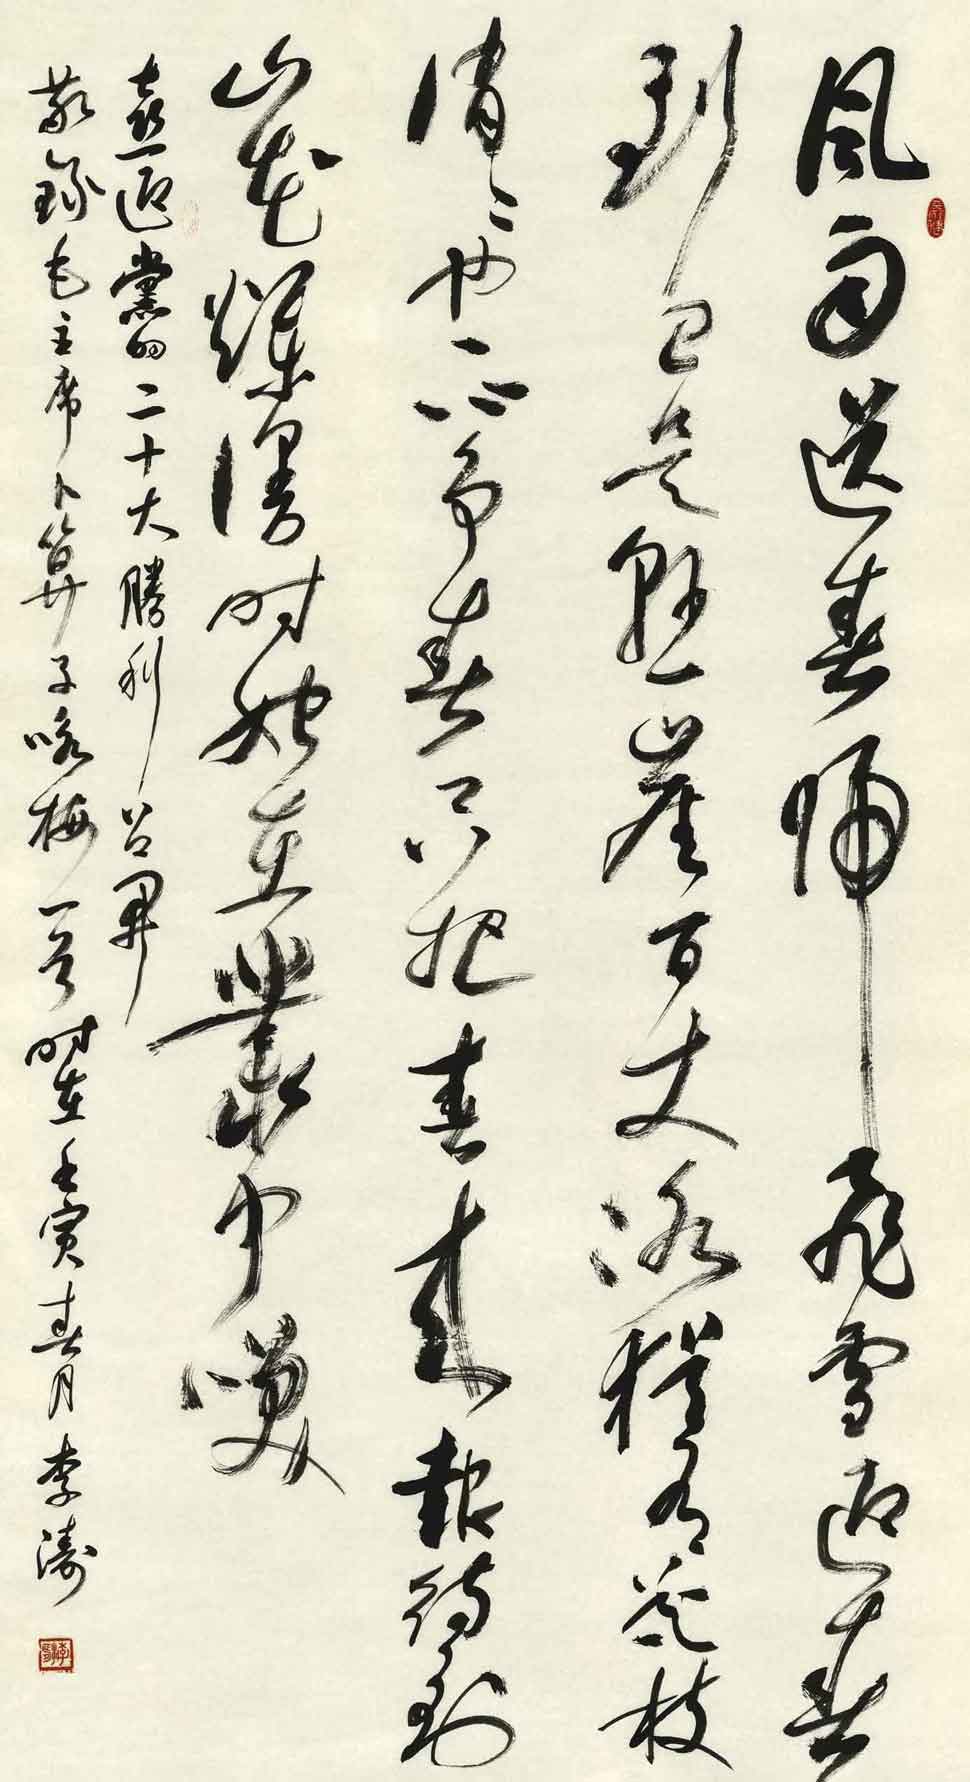 风雨送春归飛雪迎春
到已是懸崖百丈冰猶有花枝
俏〻也不争春只把春来報待到
山花爛漫时她在叢中咲
喜迎黨的二十大勝利召開
敬録毛主席卜算子咏梅一首时在壬寅春月李濤